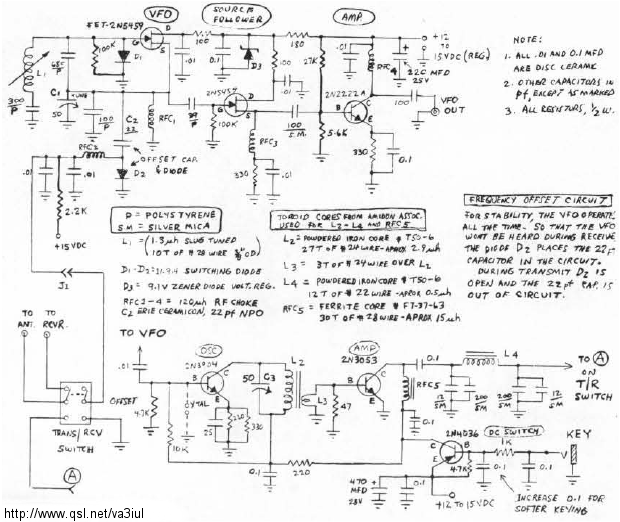 VFO
SOURCE
FOLLOWER
AMP.
FET-2N5459
D
G
S
100
180
+12
TO
15VDC (REG.)
L1
680
P
100K
D1
.01
0.1
D3
.01
27K
.01
RFC4
220 MFD
25V
2N5459
D
G
S
.01
100
2N2222A
C
B
E
100
VFO
OUT
300
P
C1
50
TUNE
100
P
C2
22
RFC1
39
P
100K
100
S.M.
5.6K
RFC3
330
.01
330
0.1
RFC2
.01
.01
D2
OFFSET CAP.
& DIODE
2.2K
+15VDC
J1
NOTE:
1. ALL .01 AND 0.1 MFD
ARE DISC CERAMIC
2. OTHER CAPACITORS IN
pf, EXCEPT AS MARKED
3. ALL RESISTORS, 1/2 W.
P = POLYSTYRENE
SM = SILVER MICA
L1 = 1.3µh SLUG TUNED
(10T OF #28 WIRE 3/8" OD)
D1-D2=1N914 SWITCHING DIODE
D3 = 9.1V ZENER DIODE VOLT. REG.
RFC1-4 = 120µh RF CHOKE
C2 ERIE CERAMICON, 22pf NPO
TOROID CORES FROM AMIDON ASSOC.
USED FOR L2-L4 AND RFC5
L2=POWDERED IRON CORE # T50-6
27T OF #24 WIRE-APROX 2.9µh
L3 = 3T OF #24 WIRE OVER L2
L4 = POWDERED IRON CORE # T50-6
12T OF #22 WIRE-APROX 0.5µh
RFC5 = FERRITE CORE # F7-37-63
30T OF #28 WIRE-APROX 15µh
FREQUENCY OFFSET CIRCUIT
FOR STABILITY, THE VFO OPERATES
ALL THE TIME. SO THAT THE VFO
WON'T BE HEARD DURING RECEIVE
THE DIODE D2 PLACES THE 22pf
CAPACITOR IN THE CIRCUIT.
DURING TRANSMIT D2 IS
OPEN AND THE 22pf CAP. IS
OUT OF CIRCUIT.
TO
ANT.
TO
RCVR.
OFFSET
TRANS/RCV
SWITCH
A
TO VFO
.01
OSC
2N3904
C
B
E
4.7K
XTAL
25
220
330
10K
50
C3
L2
L3
0.1
220
AMP
2N3053
C
B
E
47
RFC5
0.1
0.1
L4
12
SM
200
SM
200
SM
12
SM
TO A
ON
T/R
SWITCH
2N4036
C
B
E
DC SWITCH
1K
4.7K
0.1
0.1
KEY
470
MFD
25V
0.1
+12 TO 15VDC
INCREASE 0.1 FOR
SOFTER KEYING
http://www.qsl.net/va3iul